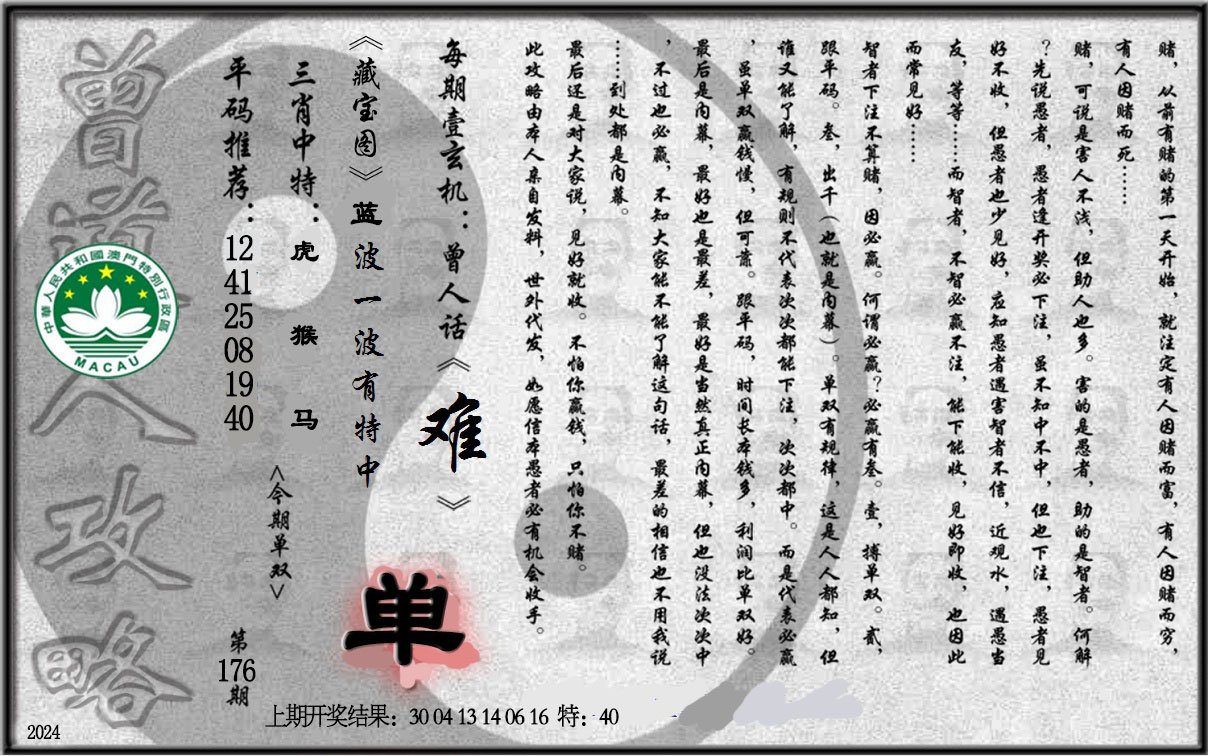 赌，从前有赌的第一天开始，就注定有人因赌而富，有人因赌而穷，
有人因赌而死……
赌，可说是害人不浅，但助人也多。害的是愚者，助的是智者。何解
？先说愚者，愚者逢开奖必下注，虽不知中不中，但也下注，愚者见
好不收，但愚者也少见好，应知愚者遇害智者不信，近观水，遇愚当
友，等等……而智者，不智必赢不注，能下能收，见好即收，也因此
而常见好……
智者下注不算赌，因必赢。何谓必赢？必赢有叁。壹，搏单双。贰，
跟平码。叁，出千（也就是内幕）。单双有规律，这是人人都知，但
谁又能了解，有规则不代表次次都能下注，次次都中。而是代表必赢
，虽单双赢钱慢，但可靠。跟平码，时间长本钱多，利润比单双好。
最后是内幕，最好也是最差，最好是当然真正内幕，但也没法次次中
，不过也必赢，不知大家能不能了解这句话，最差的相信也不用我说
……到处都是内幕。
最后还是对大家说，见好就收。不怕你赢钱，只怕你不赌。
此攻略由本人亲自发料，世外代发，如愿信本愚者必有机会收手。
每期壹玄机：曾人话《难》
《藏宝图》蓝波一波有特中
三肖中特：虎 猴 马
<今期单双>
单
平码推荐：12 41 25 08 19 40
第176期
曾道人攻略
中華人民共和國澳門特別行政區
MACAU
上期开奖结果：30 04 13 14 06 16 特：40
2024